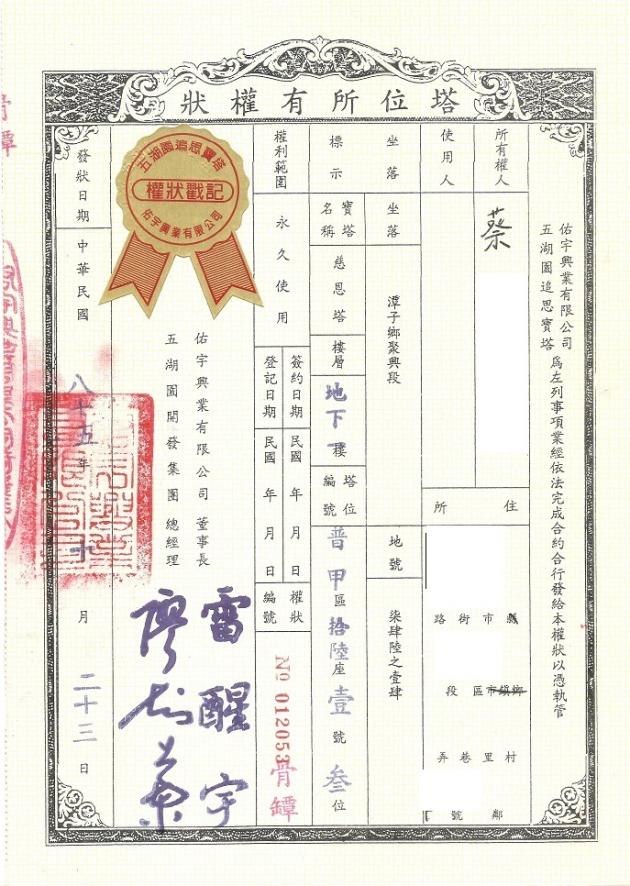 塔位所有權狀
佑宇興業有限公司
五湖園追思寶塔
為左列事項業經依法完成合約合行發給本權狀以憑執管
所有權人
蔡
使用人
住所
縣市街路
鄉鎮市區段
村里巷弄
鄰號
坐落
坐落
潭子鄉聚興段
地號
柒肆陸之壹肆
標示
寶塔名稱
慈恩塔
樓層
地下樓
塔位編號
普甲區拾陸座壹號叁位
權利範圍
永久使用
簽約日期
民國 年 月 日
登記日期
民國 年 月 日
權狀編號
No 012053
骨罈
五湖園追思寶塔
權狀戳記
佑宇興業有限公司
佑宇興業有限公司 董事長
雷醒宇
五湖園開發集團 總經理
發狀日期
中華民國八十五年十月二十三日
骨罈